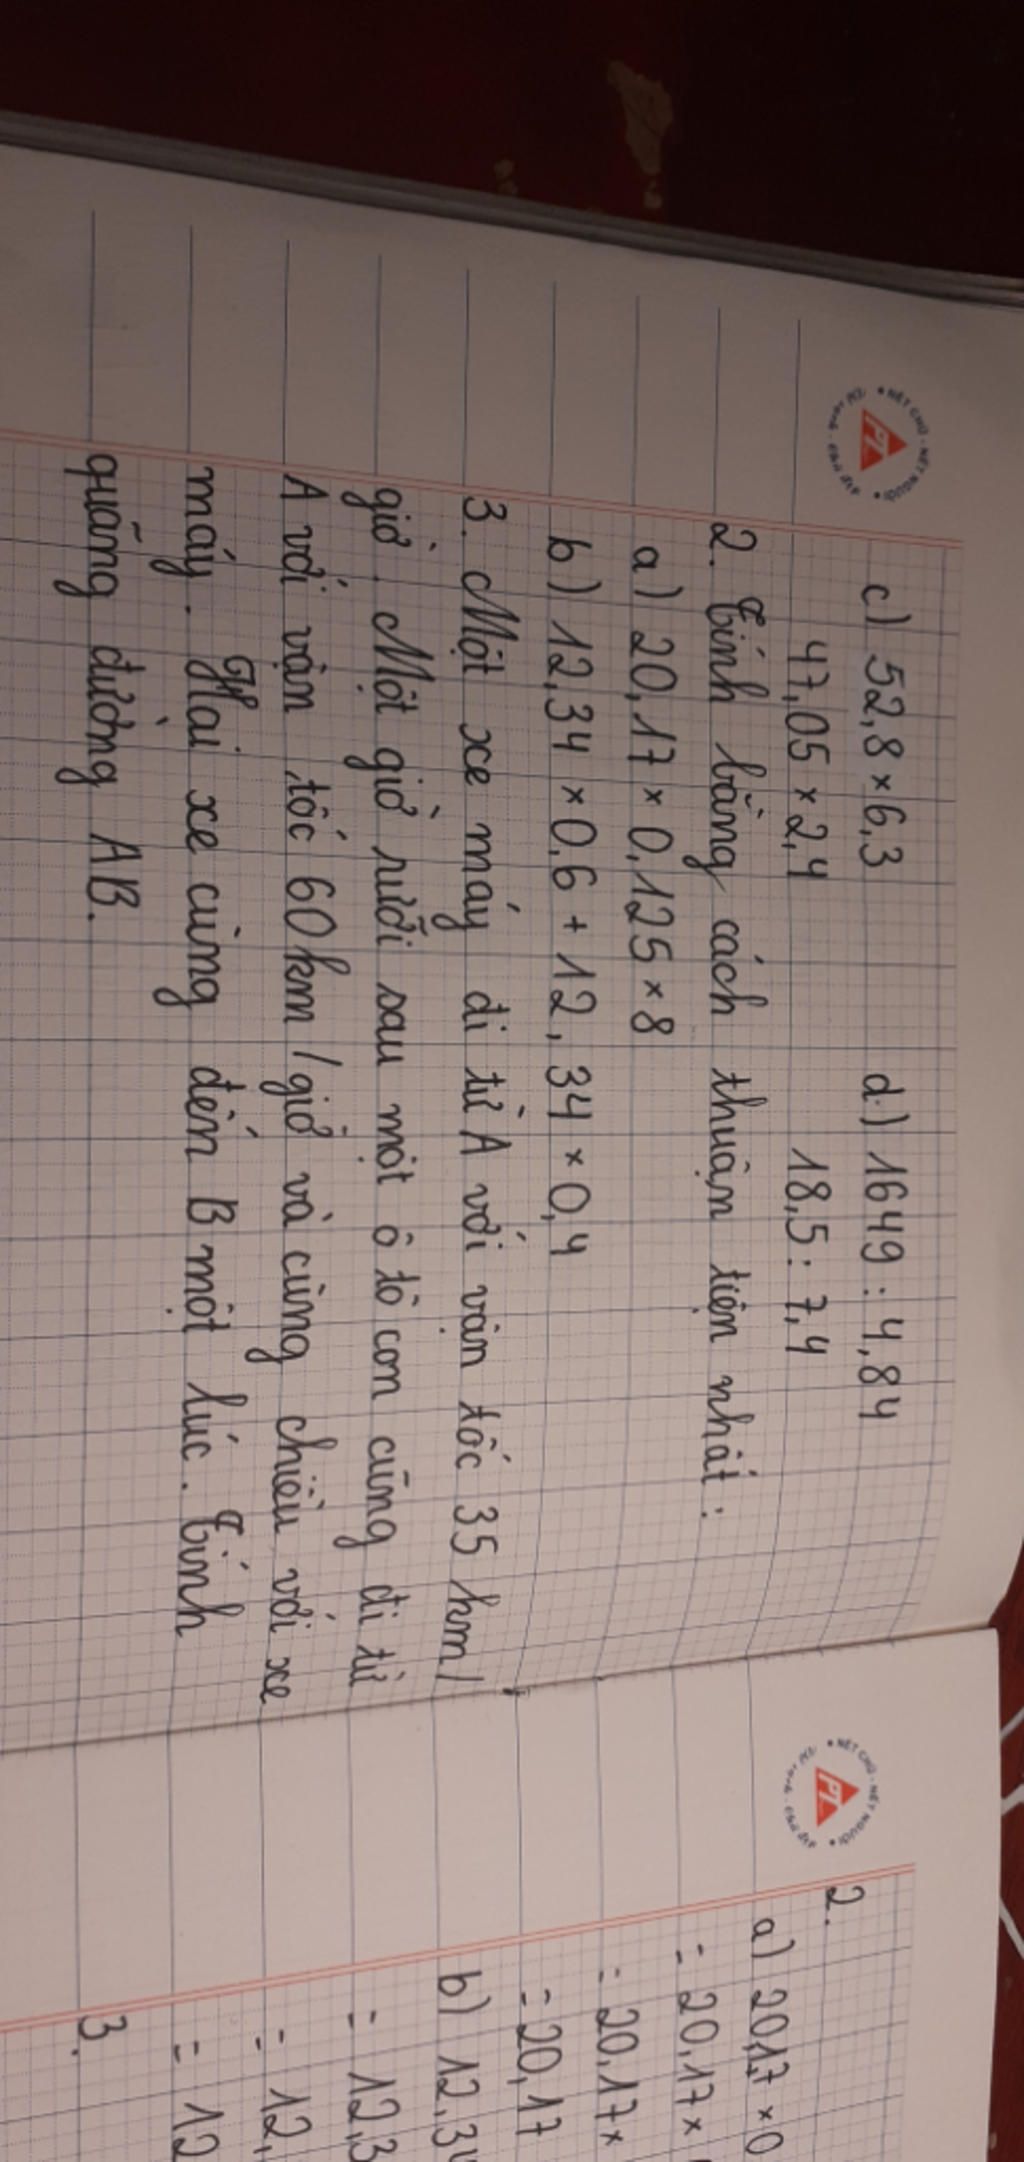 NÉT CHỮ - NẾT NGƯỜI
PT
c) 52,8 × 6,3 d) 1649 : 4,84
47,05 × 2,4 18,5 : 7,4
2. Tính bằng cách thuận tiện nhất :
a) 20,17 × 0,125 × 8
b) 12,34 × 0,6 + 12,34 × 0,4
3. Một xe máy đi từ A với vận tốc 35 km/
giờ. Một giờ rưỡi sau một ô tô con cũng đi từ
A với vận tốc 60 km/giờ và cùng chiều với xe
máy. Hai xe cùng đến B một lúc. Tính
quãng đường AB.
NÉT CHỮ - NẾT NGƯỜI
PT
2.
a) 20,17 × 0
= 20,17 ×
= 20,17 ×
= 20,17
b) 12,34
= 12,3
= 12,
= 12
3.